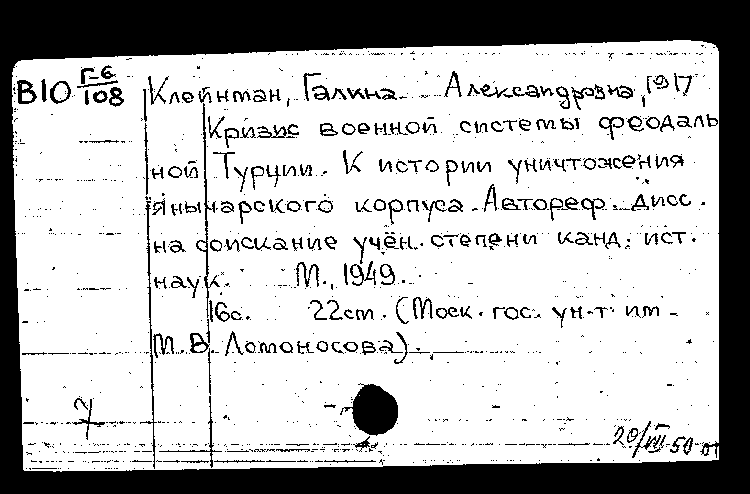 В10 Г-6/108 Клейнман, Галина Александровна, 1917
Кризис военной системы феодаль
ной Турции. К истории уничтожения
янычарского корпуса. Автореф. дисс.
на соискание учён. степени канд. ист.
наук. М., 1949.
16с. 22см. (Моск. гос. ун-т им.
М. В. Ломоносова).
20/VIII 50 от